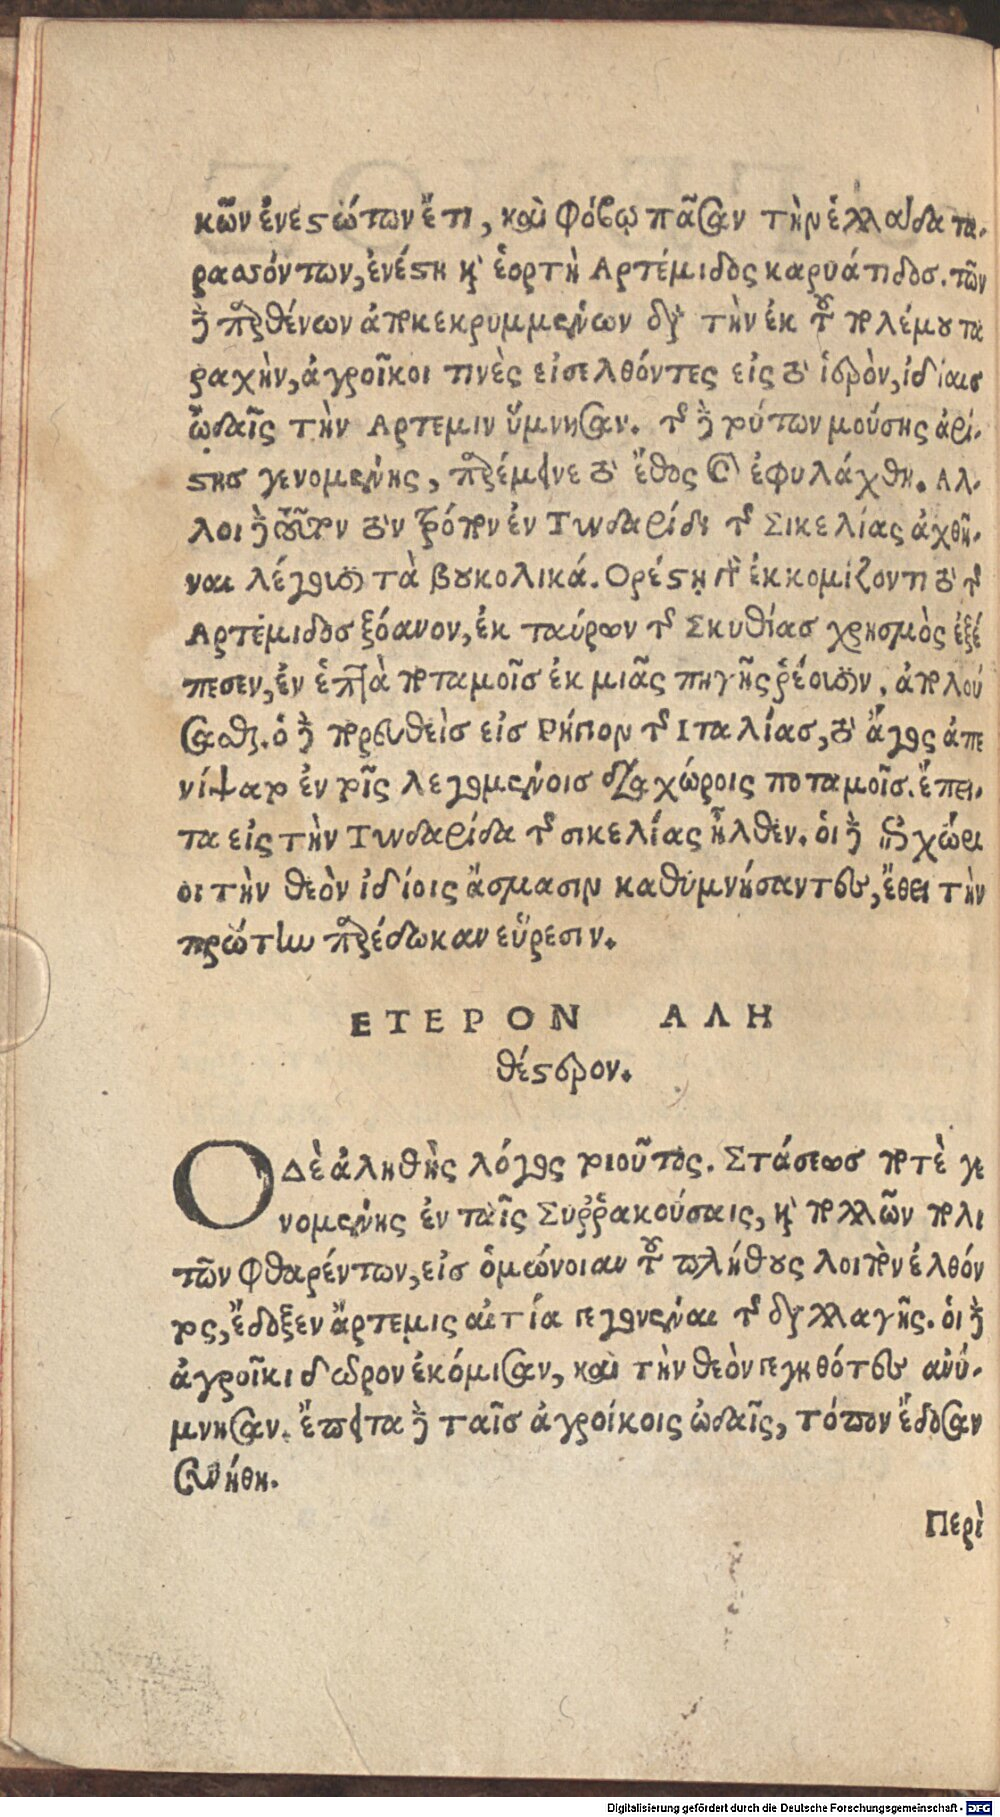 κῶν ἐνεστώτων ἔτι, καὶ φόβῳ πᾶσαν τὴν ἑλλάδα τα-
ρασσόντων, ἐνέστη κ̀ ἑορτὴ Αρτέμιδος καρυάτιδος. τῶν
ἢ παρθένων ἀποκεκρυμμένων διὰ τὴν ἐκ τοῦ πολέμου τα
ραχὴν, ἀγροῖκοι τινὲς εἰσελθόντες εἰς τὸ ἱερὸν, ἰδίαις
ᾠδαῖς τὴν Αρτεμιν ὕμνησαν. τῆς δὲ τούτων μούσης ἀρί-
στης γενομένης, παρέμεινε τὸ ἔθος καὶ ἐφυλάχθη. Αλ-
λοι δὲ φασιν τὸν τρόπον ἐν Τυνδαρίδι τῆς Σικελίας ἀχθῆ-
ναι λέγουσι τὰ βουκολικά. Ορέστῃ γὰρ ἐκκομίζοντι τὸ τῆς
Αρτέμιδος ξόανον, ἐκ ταύρων τῆς Σκυθίας χρησμὸς ἐξέ
πεσεν, ἐν ἑπτὰ ποταμοῖς ἐκ μιᾶς πηγῆς ῥέουσιν, ἀπολού
σασθαι. ὁ δὲ πορευθεὶς εἰς Ρήγιον τῆς Ιταλίας, τὸ ἄγος ἀπε
νίψατο ἐν τοῖς λεγομένοις διαχώροις ποταμοῖς. ἔπει-
τα εἰς τὴν Τυνδαρίδα τῆς σικελίας ἦλθεν. ὁι δὲ ἐπιχώρι
οι τὴν θεὸν ἰδίοις ἄσμασιν καθυμνήσαντες, ἔθει τὴν
πρώτην παρέδωκαν εὕρεσιν.
ΕΤΕΡΟΝ ΑΛΗ
θέστερον.
Ο ΔΕ ἀληθὴς λόγος τοιοῦτος. Στάσεως ποτὲ γε
νομένης ἐν ταῖς Συῤῥακούσαις, κ̀ πολλῶν πολι
τῶν φθαρέντων, εἰς ὁμόνοιαν τοῦ πλήθους λοιπὸν ἐλθόν
τος, ἔδοξεν ἄρτεμις αἰτία γεγονέναι τῆς διαλλαγῆς. ὁι δὲ
ἀγροῖκι δωρον ἐκόμισαν, καὶ τὴν θεὸν γεγηθότες ἀνύ-
μνησαν. ἔπειτα δὲ ταῖς ἀγροίκοις ὠδαῖς, τόπον ἔδοσαν
συνήθη.
Περὶ
Digitalisierung gefördert durch die Deutsche Forschungsgemeinschaft - DFG